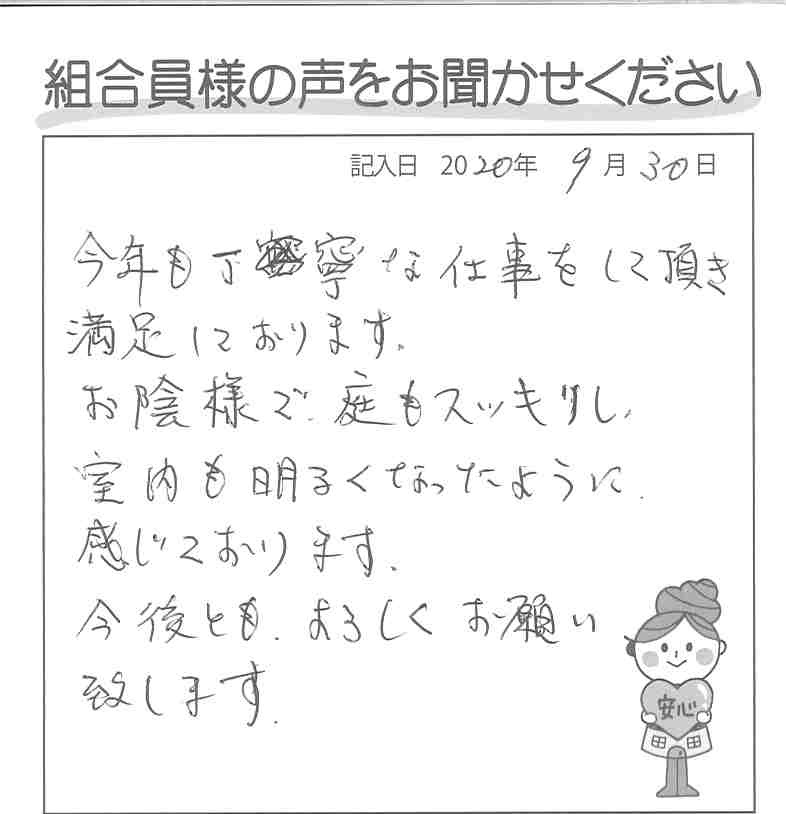 組合員様の声をお聞かせください
記入日 2020年 9月30日
今年も丁寧な仕事をして頂き
満足しております。
お陰様で、庭もスッキリし、
室内も明るくなったように、
感じております。
今後とも、よろしくお願い
致します。
安心